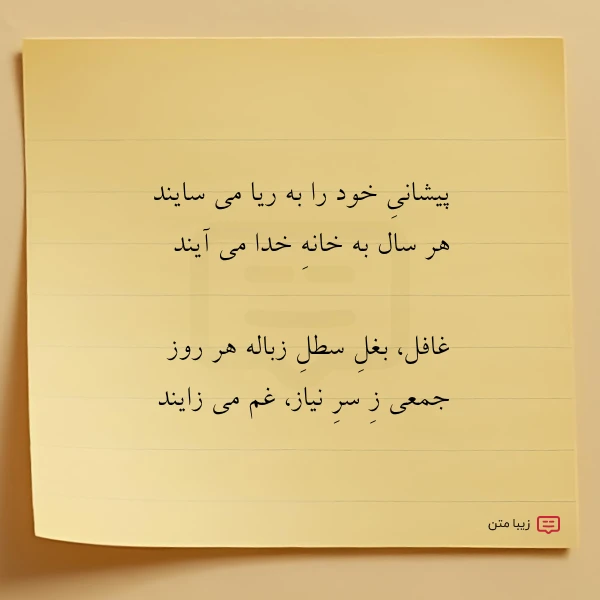 پیشانیِ خود را به ریا می سایند
هر سال به خانهِ خدا می آیند
غافل، بغلِ سطلِ زباله هر روز
جمعی زِ سرِ نیاز، غم می زایند
زیبا متن